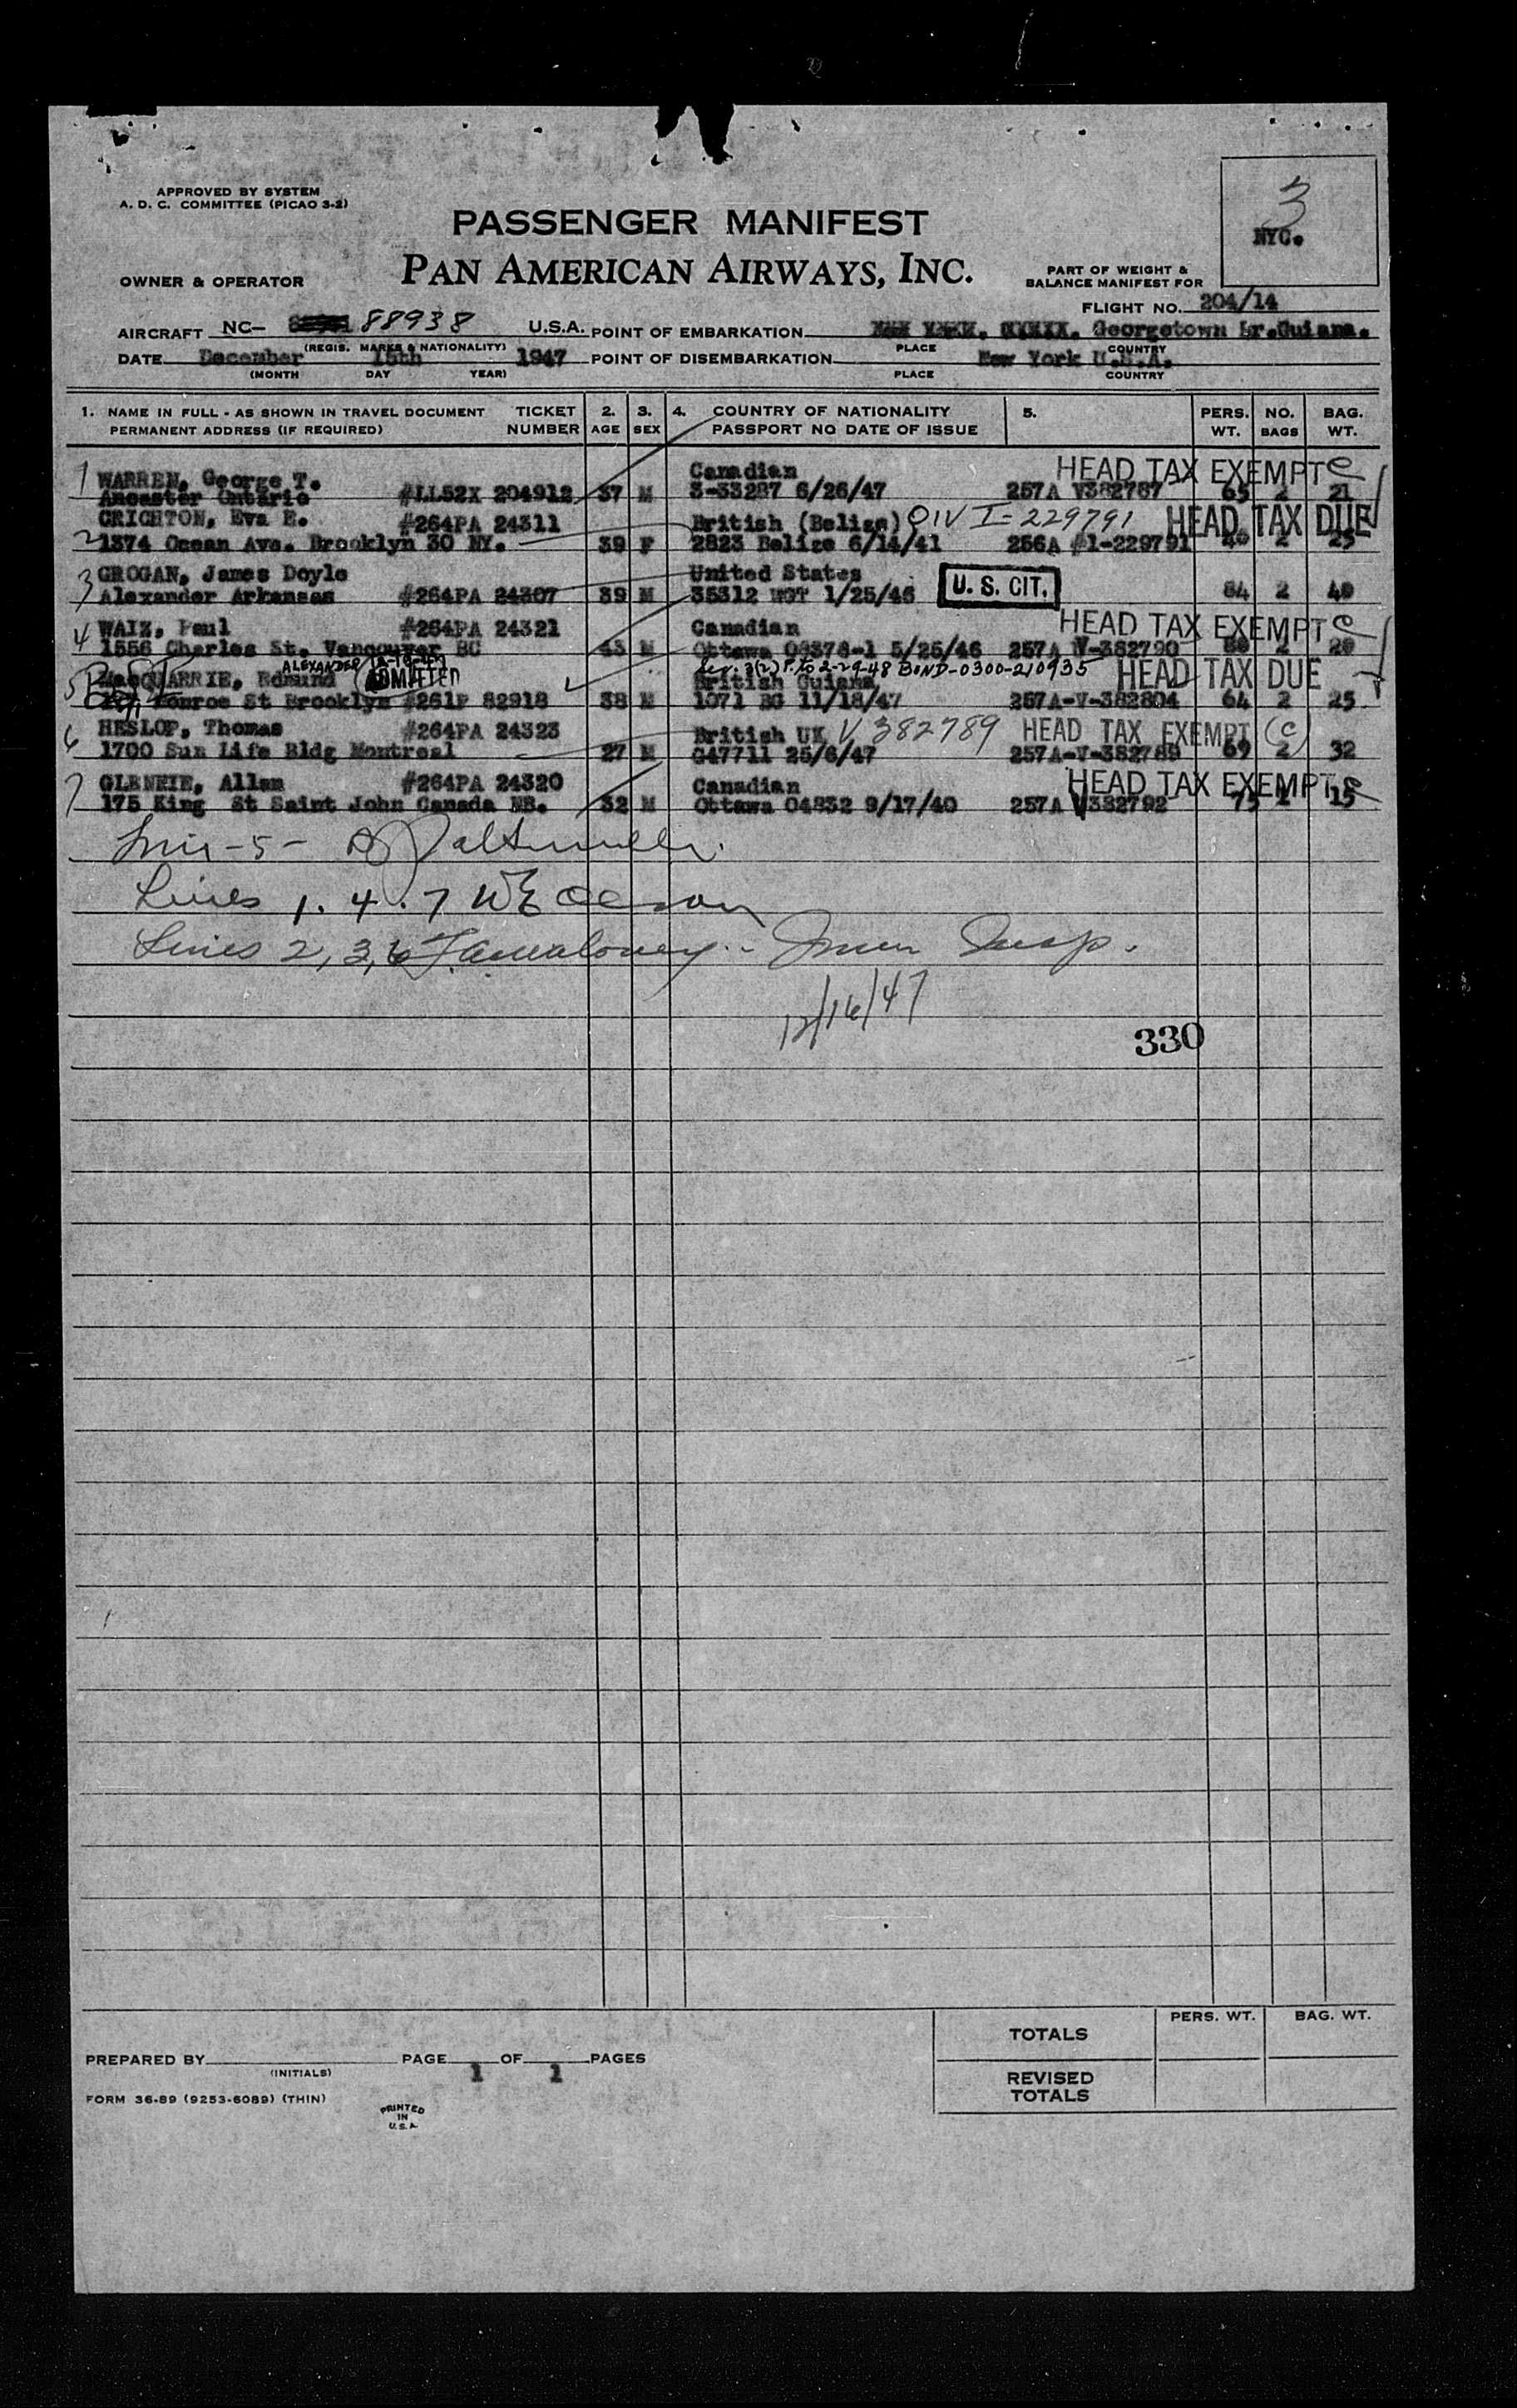 APPROVED BY SYSTEM
A. D. C. COMMITTEE (PICAO 3-2)
3
NYC.
PASSENGER MANIFEST
PAN AMERICAN AIRWAYS, INC.
OWNER & OPERATOR
PART OF WEIGHT &
BALANCE MANIFEST FOR
FLIGHT NO. 204/14
AIRCRAFT NC- 88938 U.S.A. POINT OF EMBARKATION Georgetown Br.Guiana.
(REGIS. MARKS & NATIONALITY) PLACE COUNTRY
DATE December 15th 1947 POINT OF DISEMBARKATION New York U.S.A.
(MONTH DAY YEAR) PLACE COUNTRY
1. NAME IN FULL - AS SHOWN IN TRAVEL DOCUMENT TICKET 2. 3. 4. COUNTRY OF NATIONALITY 5. PERS. NO. BAG.
PERMANENT ADDRESS (IF REQUIRED) NUMBER AGE SEX PASSPORT NO DATE OF ISSUE WT. BAGS WT.
1 WARREN, George T. Canadian HEAD TAX EXEMPT C
Ancaster Ontario #LL52X 204912 37 M 3-33297 6/26/47 257A V382787 65 2 21
CRICHTON, Eva E. #264PA 24311 British (Belize) QIV I-229791 HEAD TAX DUE
2 1374 Ocean Ave. Brooklyn 30 NY. 39 F 2823 Belize 6/14/41 256A #1-229791 2 25
3 GROGAN, James Doyle United States U. S. CIT.
Alexander Arkansas #264PA 24307 39 M 35312 1/25/46 84 2 40
4 WAIZ, Paul #264PA 24321 Canadian HEAD TAX EXEMPT C
1556 Charles St. Vancouver BC 43 M Ottawa 08378-1 5/25/46 257A V-382790 80 2 20
ALEXANDER ADMITTED Sec. 3(2) P. to 2-29-48 BOND-0300-210935 HEAD TAX DUE
5 MacQUARRIE, Edmund British Guiana
Monroe St Brooklyn #261F 82918 38 M 1071 BG 11/18/47 257A-V-382804 64 2 25
6 HESLOP, Thomas #264PA 24323 British UK V 382789 HEAD TAX EXEMPT (C)
1700 Sun Life Bldg Montreal 27 M G47711 25/6/47 257A-V-382789 69 2 32
7 GLENNIE, Allan #264PA 24320 Canadian HEAD TAX EXEMPT C
175 King St Saint John Canada NB. 32 M Ottawa 04832 9/17/40 257A V382792 75 1 15
Line -5-
Lines 1. 4. 7 WE
Lines 2, 3, 6 Immn Insp.
12/16/47
330
TOTALS PERS. WT. BAG. WT.
PREPARED BY PAGE 1 OF 1 PAGES
(INITIALS)
REVISED
TOTALS
FORM 36-89 (9253-6089) (THIN)
PRINTED
IN
U.S.A.